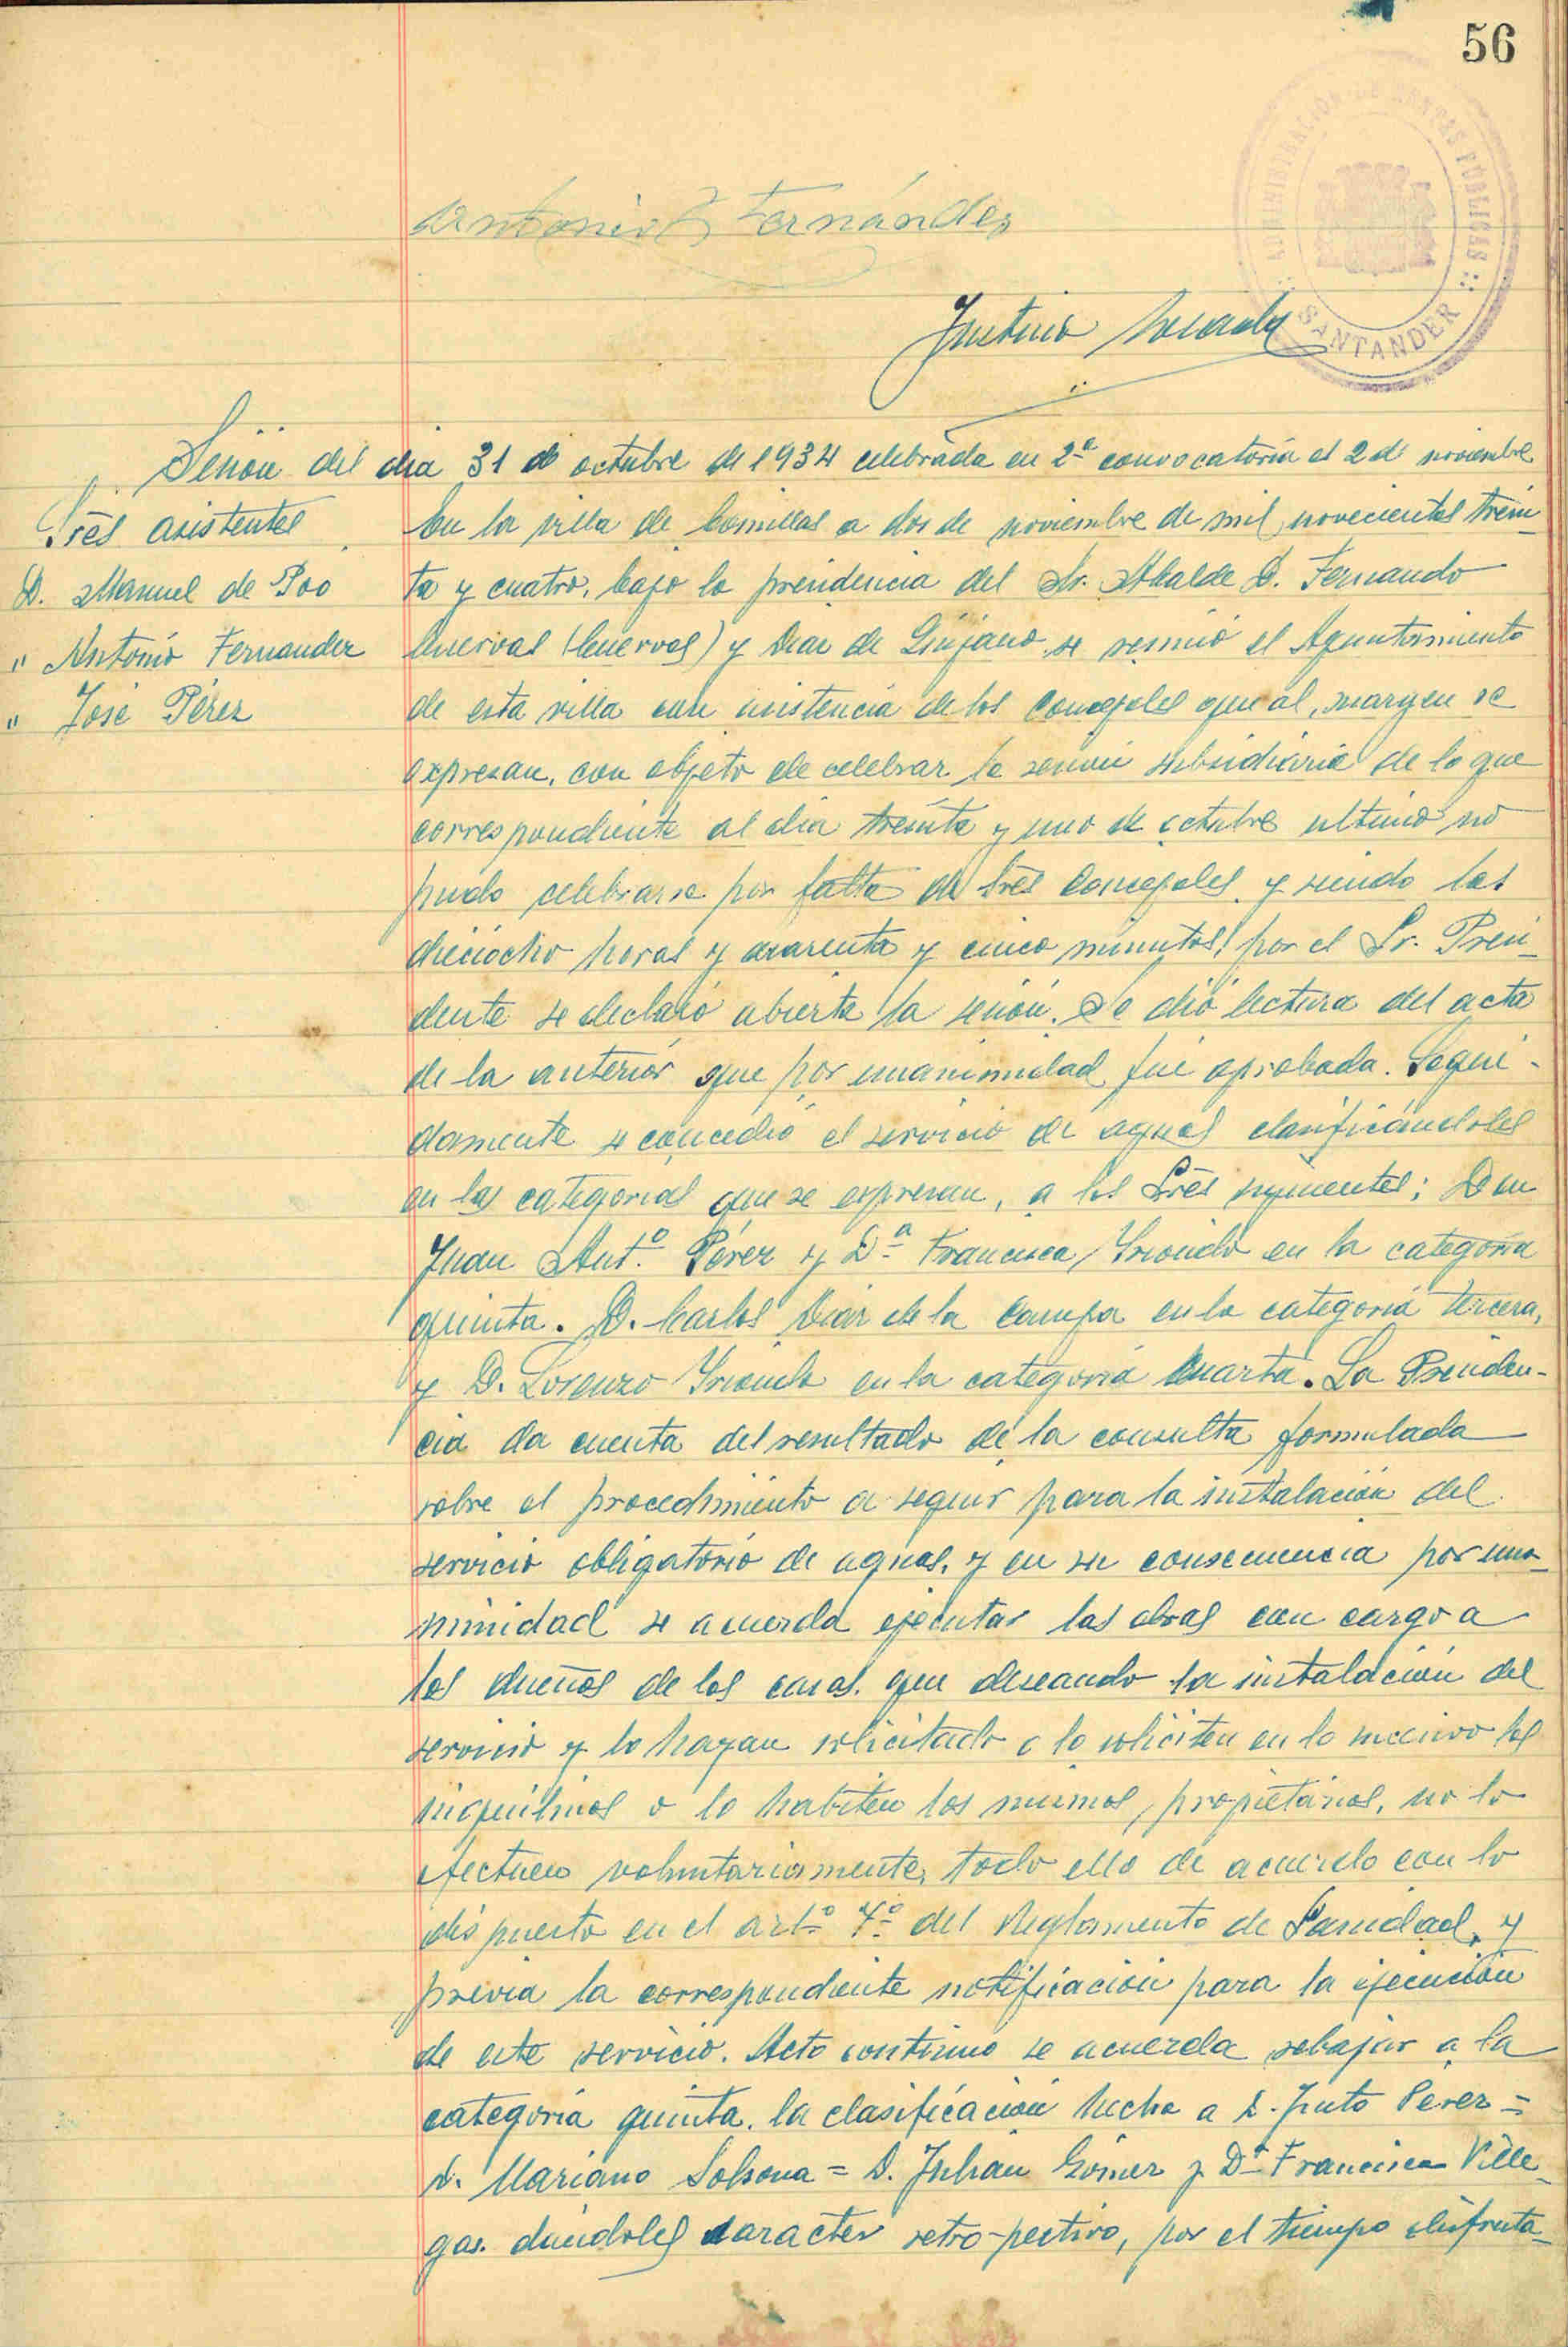 56
ADMINISTRACIÓN DE RENTAS PÚBLICAS
SANTANDER
Antonio Fernández
Sesión del dia 31 de octubre de 1934 celebrada en 2ª convocatoria el 2 de noviembre
Srēs asistentes
D. Manuel de Poo
" Antonio Fernandez
" José Pérez
En la villa de Comillas a dos de noviembre de mil novecientos trein-
ta y cuatro, bajo la presidencia del Sr. Alcalde D. Fernando
Cuervas (Cuervas) y Diaz de Quijano se reunió el Ayuntamiento
de esta villa con asistencia de los Concejales que al margen se
expresan, con objeto de celebrar la sesión subsidiaria de la que
correspondiente al dia treinta y uno de octubre ultimo no
pudo celebrarse por falta de Srēs Concejales, y siendo las
dieciocho horas y cuarenta y cinco minutos, por el Sr. Presi-
dente se declaró abierta la sesión. Se dió lectura del acta
de la anterior que por unanimidad fué aprobada. Segui-
damente se concedió el servicio de aguas clasificándoles
en las categorias que se expresan, a los Srēs siguientes; Don
Juan Antº. Pérez y Dª Francisca Iriondo en la categoria
quinta. D. Carlos Diaz de la Campa en la categoria tercera,
y D. Lorenzo Iriondo en la categoria cuarta. La Presiden-
cia da cuenta del resultado de la consulta formulada
sobre el procedimiento a seguir para la instalación del
servicio obligatorio de aguas, y en su consecuencia por una-
nimidad se acuerda ejecutar las obras con cargo a
los dueños de las casas que deseando la instalación del
servicio y lo hayan solicitado o lo soliciten en lo sucesivo los
inquilinos o lo habiten los mismos propietarios, no lo
efectuen voluntariamente, todo ello de acuerdo con lo
dispuesto en el artº 7º del Reglamento de Sanidad, y
previa la correspondiente notificación para la ejecución
de este servicio. Acto continuo se acuerda rebajar a la
categoria quinta, la clasificación hecha a D. Justo Pérez =
D. Mariano Solsona = D. Julián Gómez y Dª Francisca Ville-
gas. dándoles caracter retrospectivo, por el tiempo disfruta-